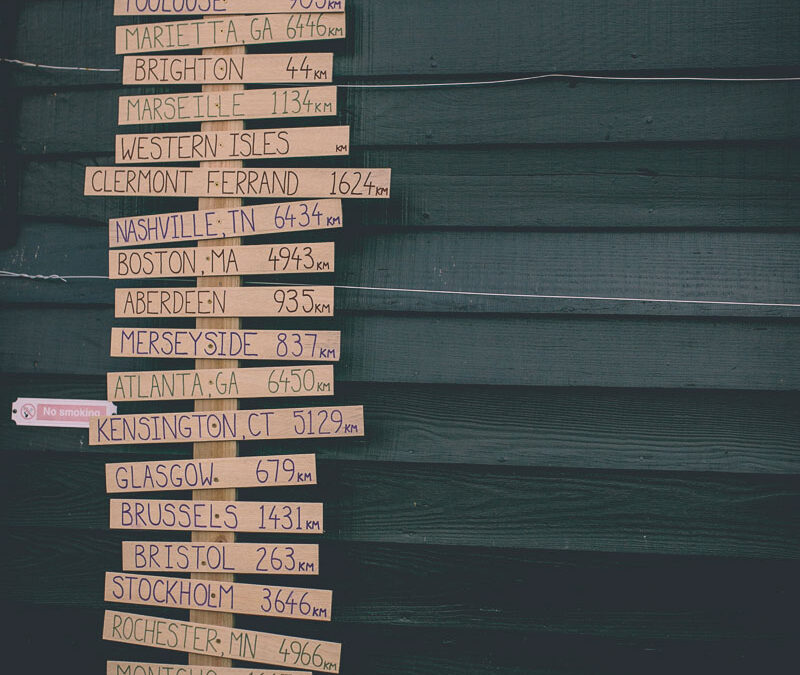 TOULOUSE 905KM
MARIETTA, GA 6446KM
BRIGHTON 44KM
MARSEILLE 1134KM
WESTERN ISLES KM
CLERMONT FERRAND 1624KM
NASHVILLE, TN 6434KM
BOSTON, MA 4943KM
ABERDEEN 935KM
MERSEYSIDE 837KM
ATLANTA, GA 6450KM
No smoking
KENSINGTON, CT 5129KM
GLASGOW 679KM
BRUSSELS 1431KM
BRISTOL 263KM
STOCKHOLM 3646KM
ROCHESTER, MN 4966KM